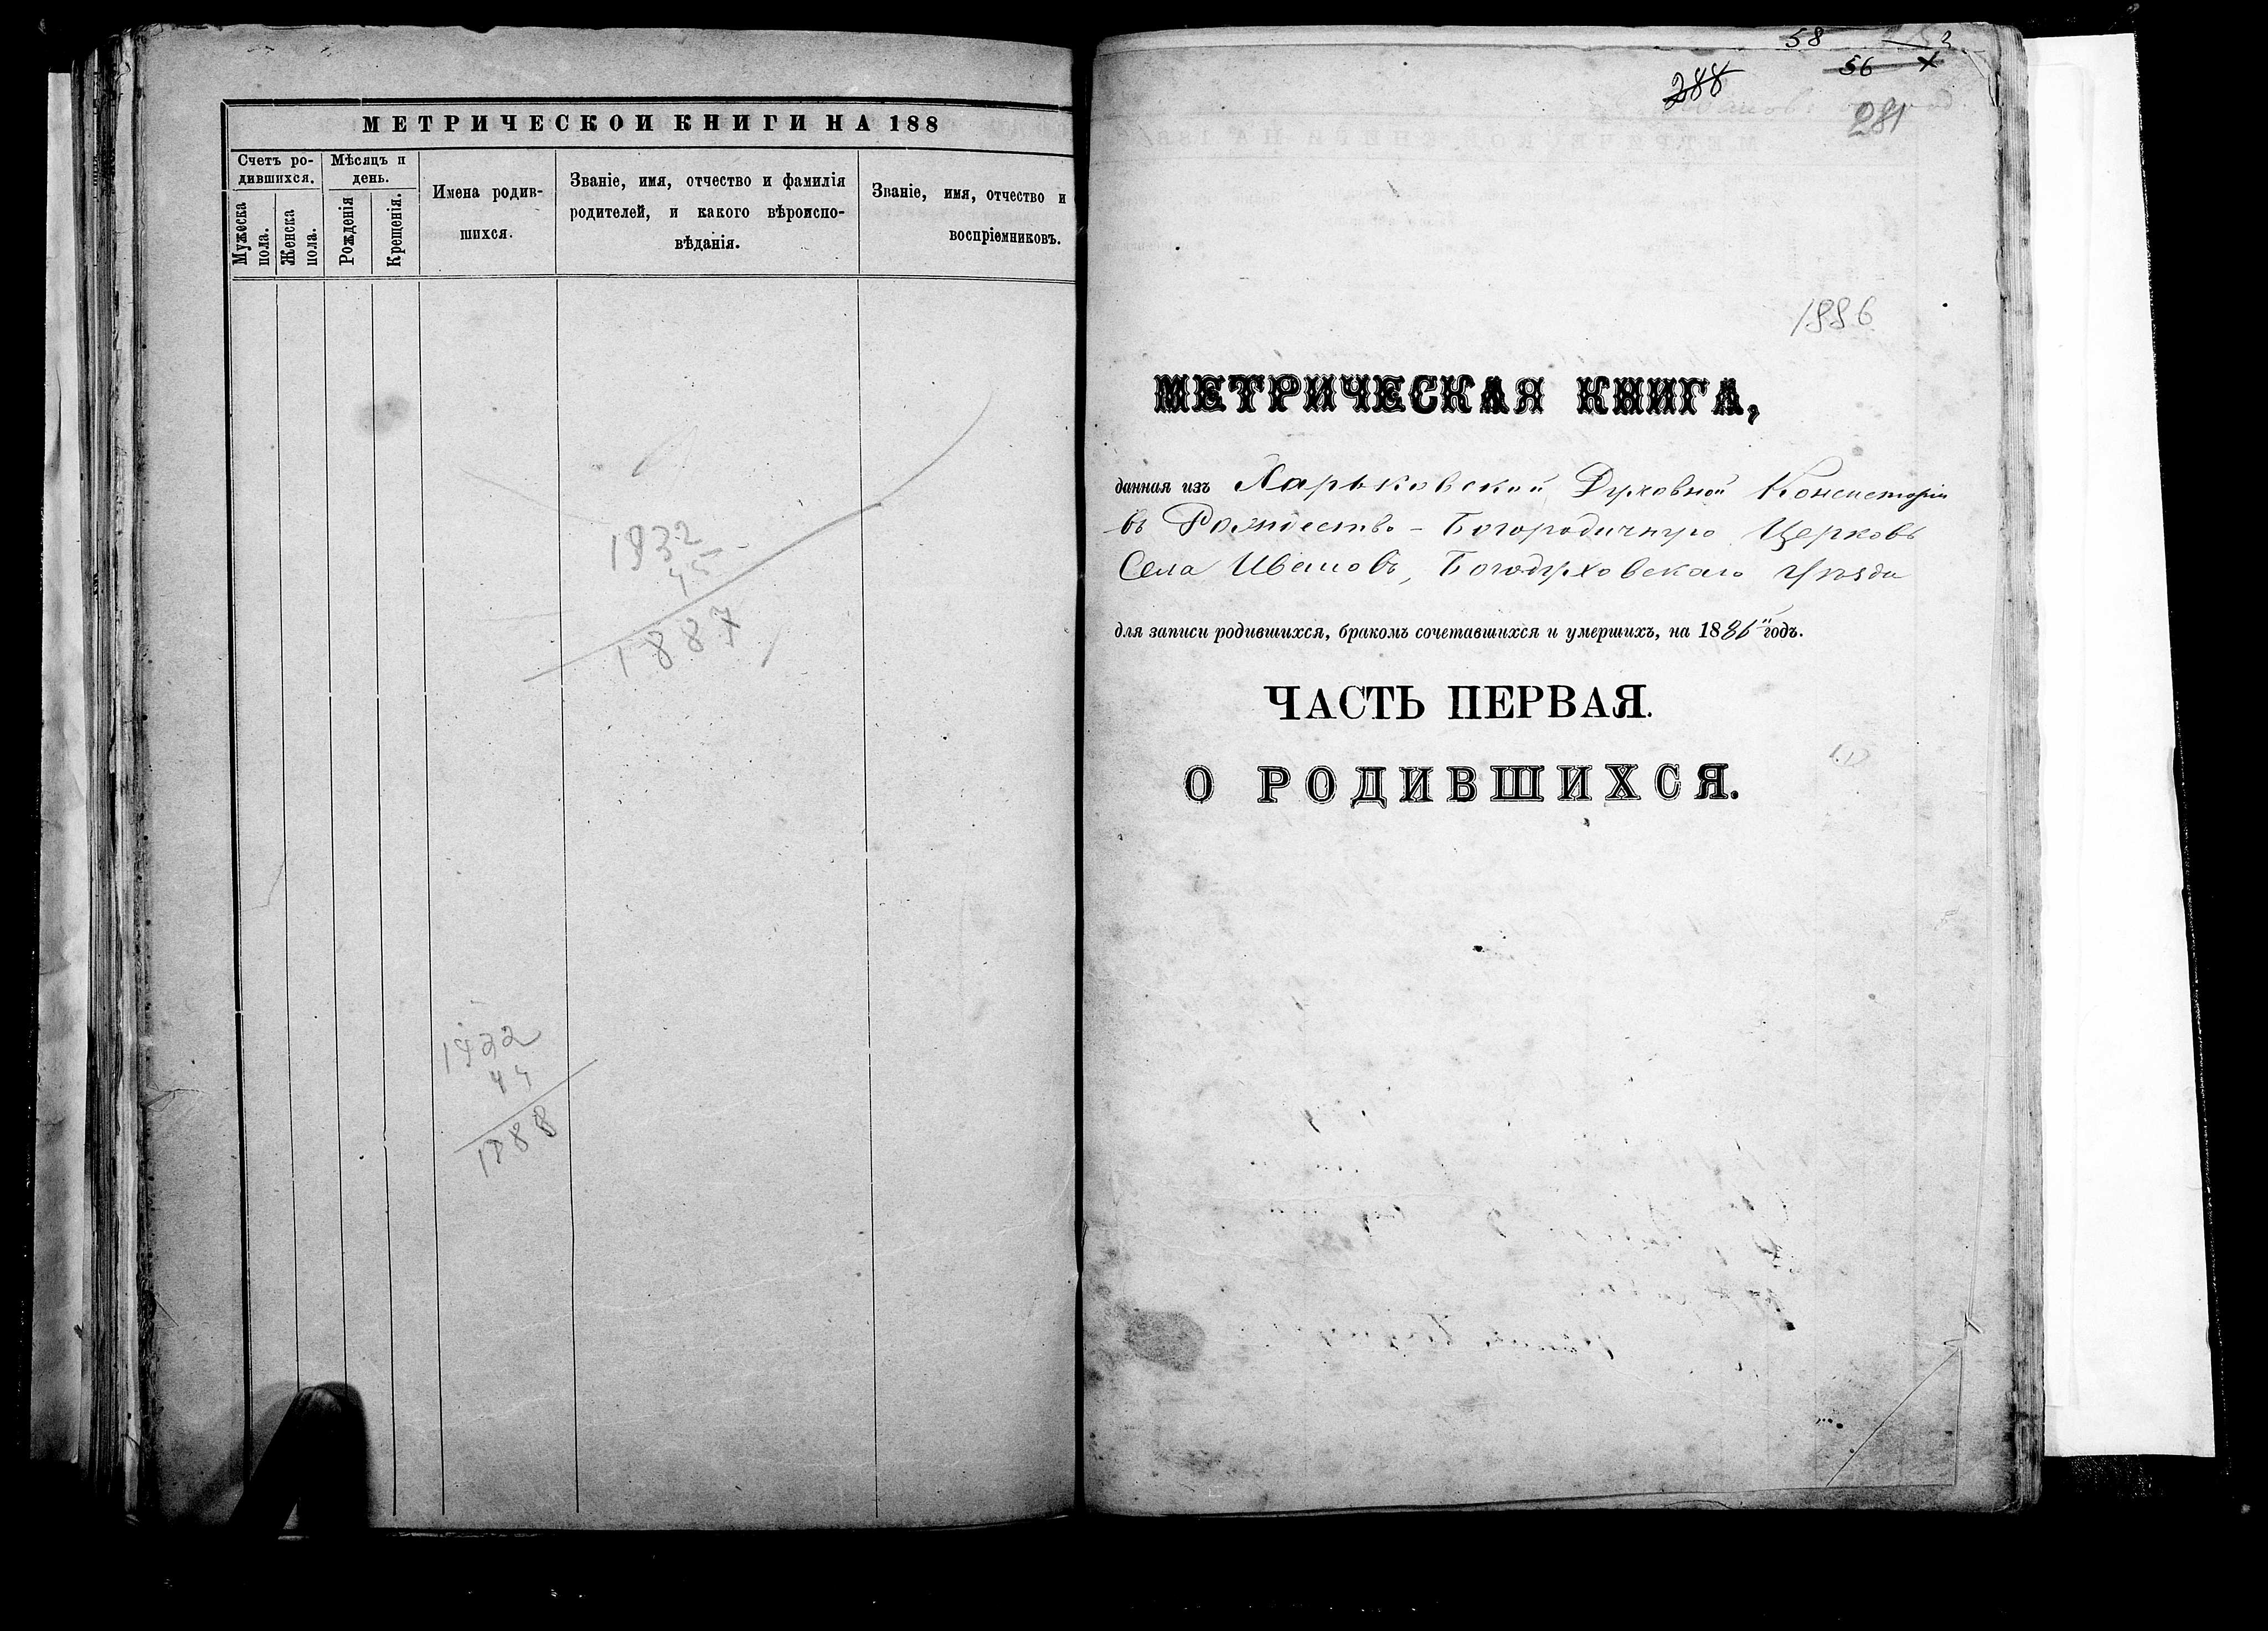 МЕТРИЧЕСКОЙ КНИГИ НА 188
Счетъ ро-
дившихся.
Мѣсяцъ и
день.
Мужеска
пола.
Женска
пола.
Рожденія
Крещенія.
Имена родив-
шихся.
Званіе, имя, отчество и фамилія
родителей, и какого вѣроиспо-
вѣданія.
Званіе, имя, отчество и
воспріемниковъ.
1932
45
1887
1932
44
1888
58
56
288
281
1886
МЕТРИЧЕСКАЯ КНИГА,
данная изъ Харьковской Духовной Консисторіи
въ Рождество-Богородичную Церковь
Села Ивановъ, Богодуховскаго Уѣзда
для записи родившихся, бракомъ сочетавшихся и умершихъ, на 1886 годъ.
ЧАСТЬ ПЕРВАЯ.
О РОДИВШИХСЯ.